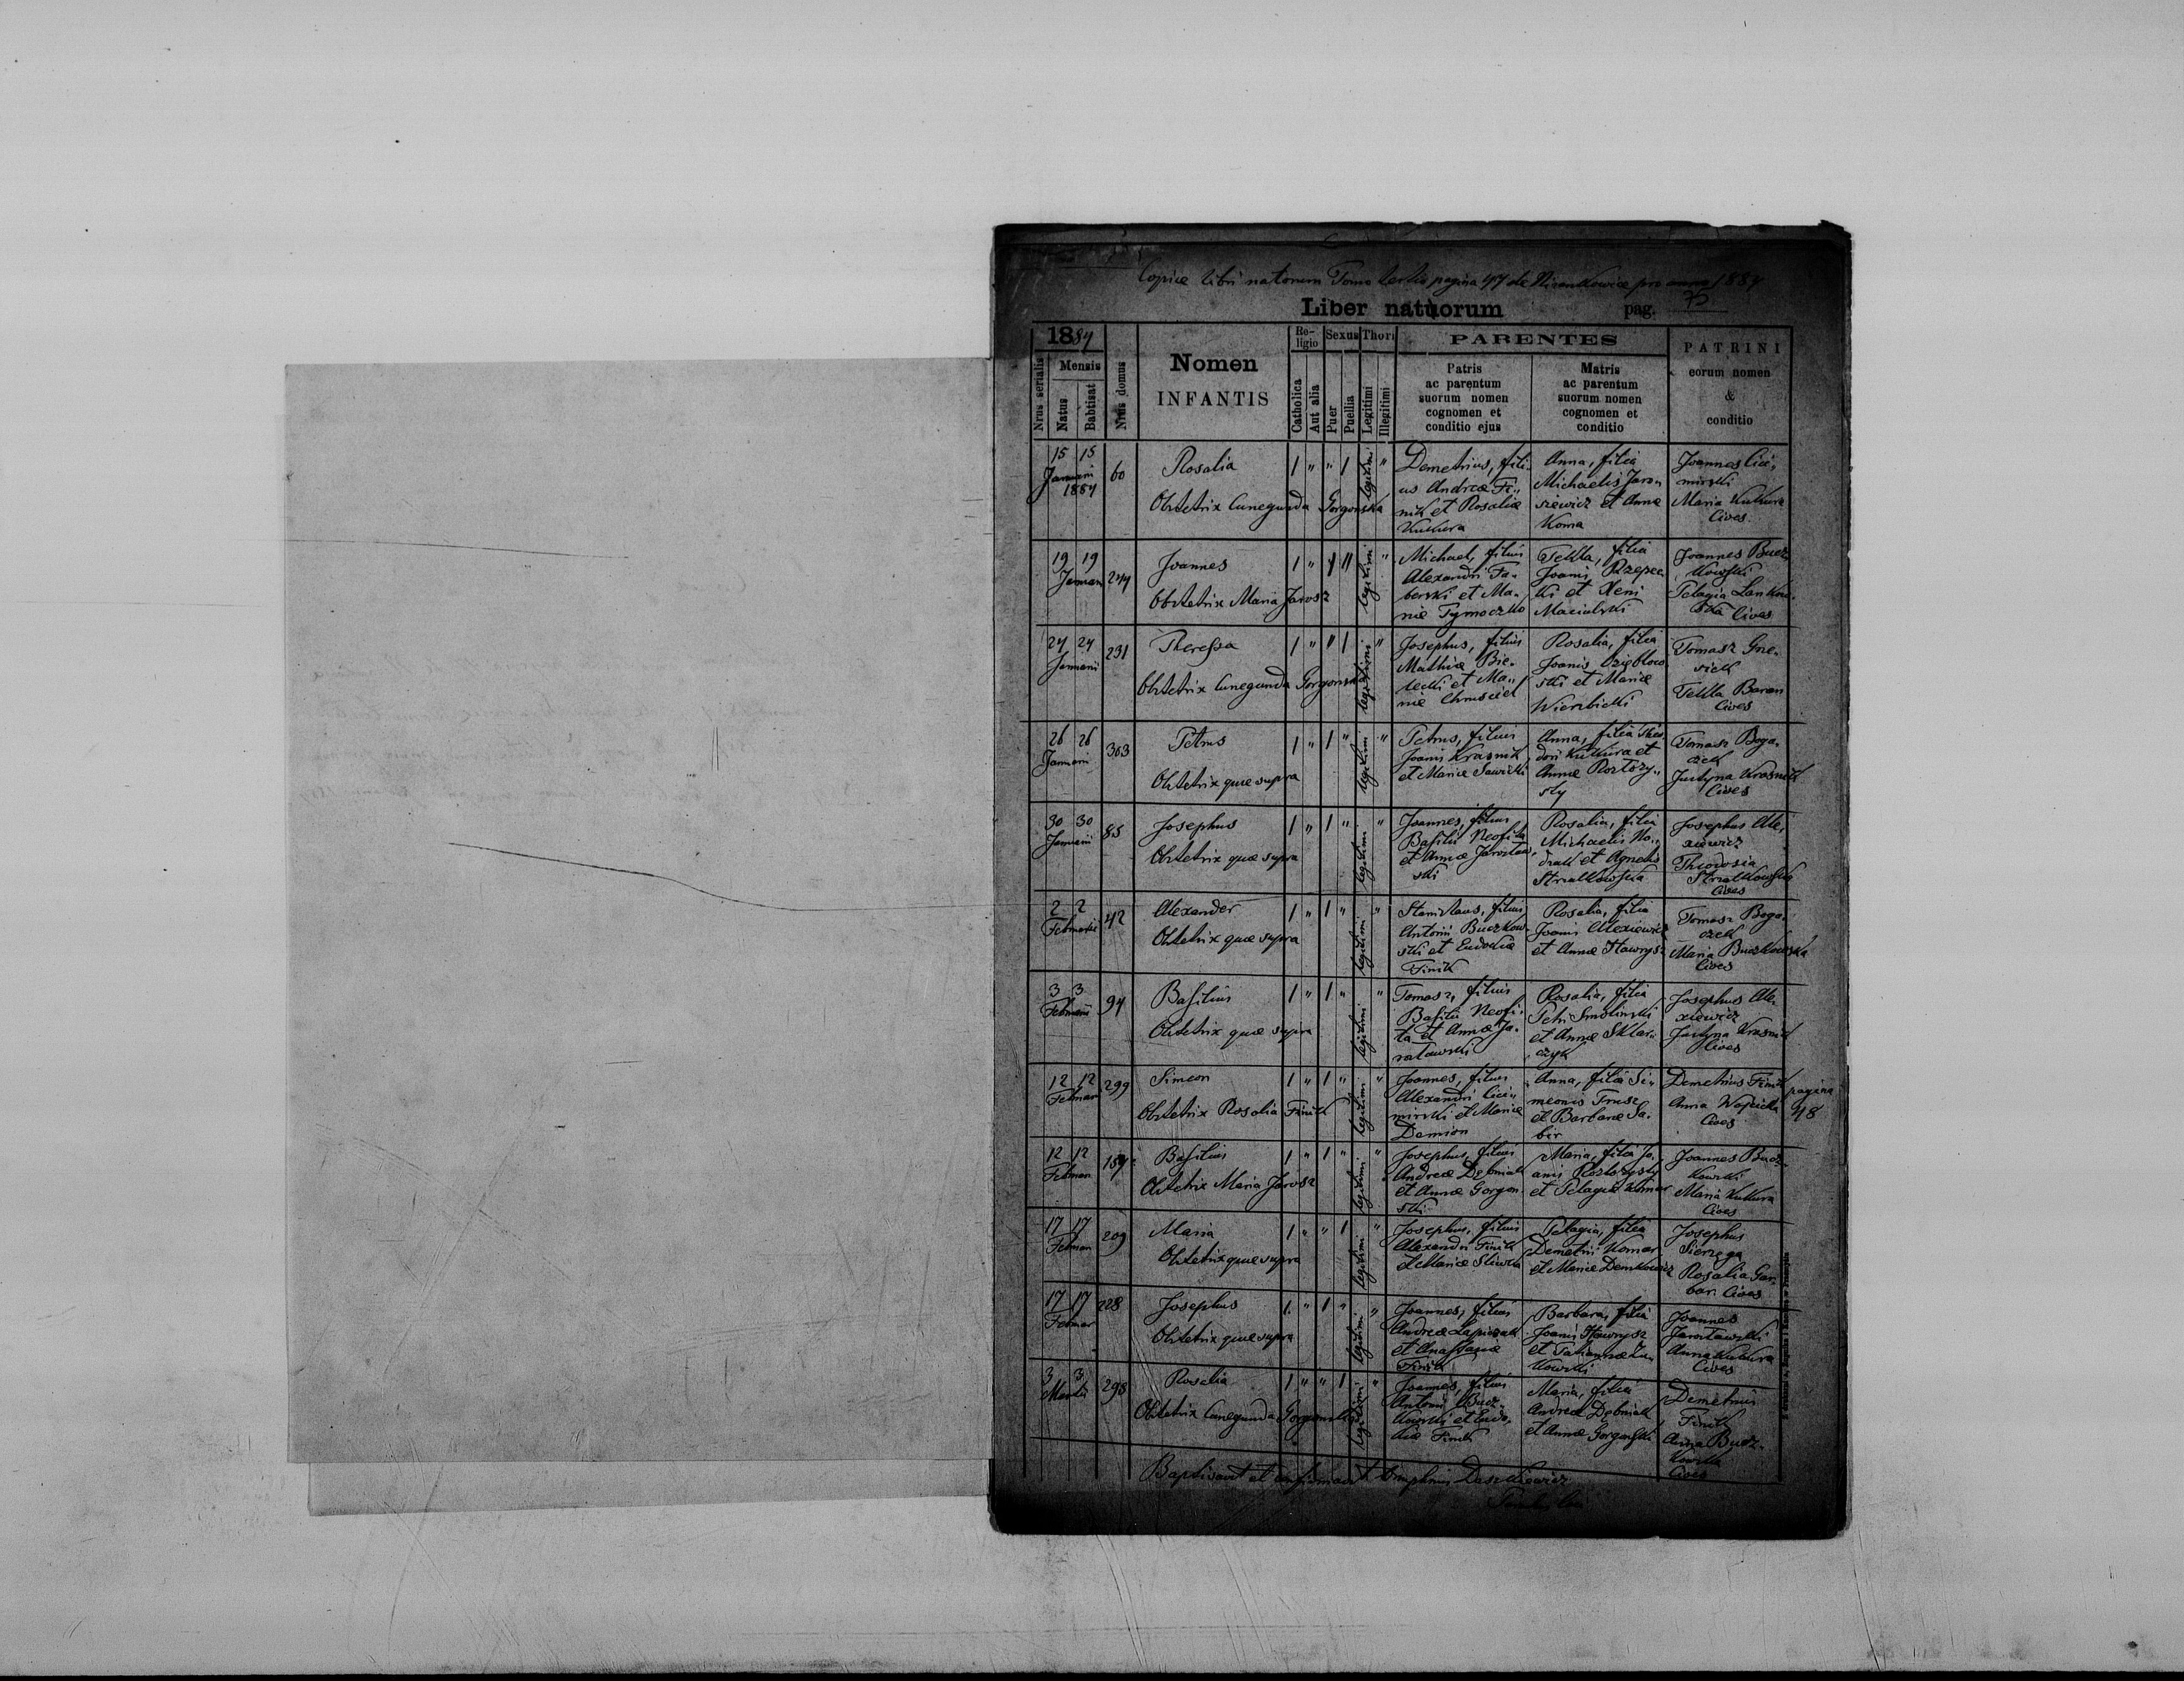 Copiae libri natorum Tomo tertio pagina 47 de pro anno 1884
Liber natuorum pag. 75
1884
Nrus serialis
Mensis
Natus
Babtisat
Nrus domus
Nomen
INFANTIS
Re-
ligio
Catholica
Aut alia
Sexus
Puer
Puella
Thori
Legitimi
Illegitimi
PARENTES
Patris
ac parentum
suorum nomen
cognomen et
conditio ejus
Matris
ac parentum
suorum nomen
cognomen et
conditio
PATRINI
eorum nomen
&
conditio
15 15
Januarii
1884
60
Rosalia
Obstetrix Cunegunda Gorgonska
1 " " 1 legitimi "
Demetrius, fili-
us Andreæ Fi-
nik et Rosaliæ
Kukura
Anna, filia
Michaelis Jaro-
siewicz et Annæ
Koma
Joannes Cici-
mirski
Maria Kukura
Cives
19 19
Januari
244
Joannes
Obstetrix Maria Jarosz
1 " 1 " legitimi "
Michael, filius
Alexandri Fa-
berski et Ma-
riæ Tymoczko
Tekla, filia
Joanis Rzepec-
ki et Xeni
Macialski
Joannes Bucz-
kowski
Pelagia
Cives
24 24
Januarii
231
Theressa
Obstetrix Cunegunda Gorgonska
1 " " 1 legitimi "
Josephus, filius
Mathiæ Bie-
lecki et Ma-
riæ Chmiciel
Rosalia, filia
Joanis
ski et Mariæ
Wierzbicki
Tomasz Gne-
sick
Tekla Baran
Cives
26 26
Januarii
303
Petrus
Obstetrix quæ supra
1 " 1 " legitimi "
Petrus, filius
Joanis Krasnik
et Mariæ Sawicki
Anna, filia Theo-
dori Kukura et
Annæ Roztoży-
sty
Tomasz Boga-
czek
Justyna Krasnik
Cives
30 30
Januarii
85
Josephus
Obstetrix quæ supra
1 " 1 " legitimi "
Joannes, filius
Basilii Neofita
et Annæ Jarosław-
ski
Rosalia, filia
Michaelis
et Agnetis
Strzalkowska
Josephus Ale-
xiewicz
Theodosia
Strzalkowska
Cives
2 2
Februarii
42
Alexander
Obstetrix quæ supra
1 " 1 " legitimi "
Stanislaus, filius
Antonii Buczkow-
ski et Eudokiæ
Finik
Rosalia, filia
Joanis Alexiewicz
et Annæ Hawrysz
Tomasz Boga-
czek
Maria Buczkowska
Cives
3 3
Februarii
94
Basilius
Obstetrix quæ supra
1 " 1 " legitimi "
Tomasz, filius
Basilii Neofi-
ta et Annæ Ja-
rosławski
Rosalia, filia
Petri Smolinski
et Annæ Sklar-
czyk
Josephus Ale-
xiewicz
Justyna Krasnik
Cives
12 12
Februar
299
Simeon
Obstetrix Rosalia Finik
1 " 1 " legitimi "
Joannes, filius
Alexandri Cici-
mirski et Mariæ
Demion
Anna, filia Si-
meonis Trusz
et Barbaræ Sa-
bir
Demetrius Finik
Anna
Cives
pagina
48
12 12
Februar
154
Basilius
Obstetrix Maria Jarosz
1 " 1 " legitimi "
Josephus, filius
Andreæ Dębniak
et Annæ Gorgon-
ski
Maria, filia Jo-
anis Roztożysty
et Pelagiæ Komar
Joannes Bucz-
kowski
Maria Kukura
Cives
17 17
Februar
209
Maria
Obstetrix quæ supra
1 " " 1 legitimi "
Josephus, filius
Alexandri Finik
et Mariæ Sliwka
Pelagia, filia
Demetrii Komar
et Mariæ Demkowicz
Josephus
Sierzega
Rosalia Gar-
bar Cives
17 17
Februar
228
Josephus
Obstetrix quæ supra
1 " 1 " legitimi "
Joannes, filius
Andreæ Lapiczak
et Anastasiæ
Finik
Barbara, filia
Joanis Hawrysz
et Tatiannæ
kowski
Joannes
Jarosławski
Anna Kukura
Cives
3 3
Martii
298
Rosalia
Obstetrix Cunegunda Gorgonska
1 " " 1 legitimi "
Joannes, filius
Antonii Bucz-
kowski et Eudo-
kiæ Finik
Maria, filia
Andreæ Dębniak
et Annæ Gorgonski
Demetrius
Finik
Anna Bucz-
kowska
Cives
Baptisavit et confirmavit Daszkiewicz